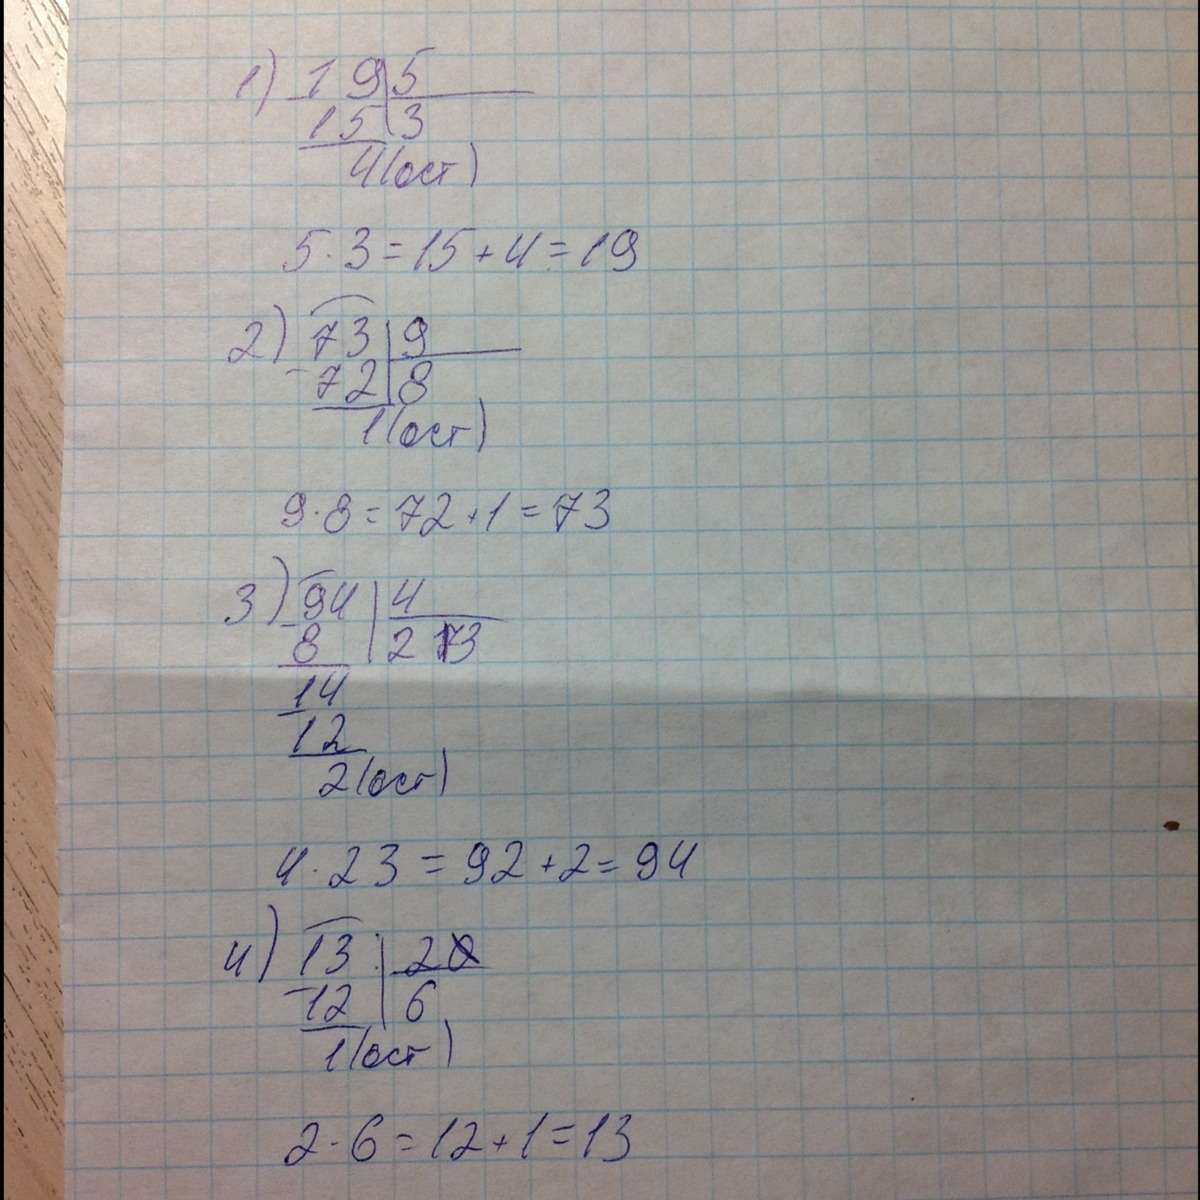 1) 19 5
15 3
4(ост)
5·3=15+4=19
2) 73 9
- 72 8
1(ост)
9·8=72+1=73
3) 94 4
- 8 2 3
14
- 12
2(ост)
4·23=92+2=94
4) 13 2
- 12 6
1(ост)
2·6=12+1=13